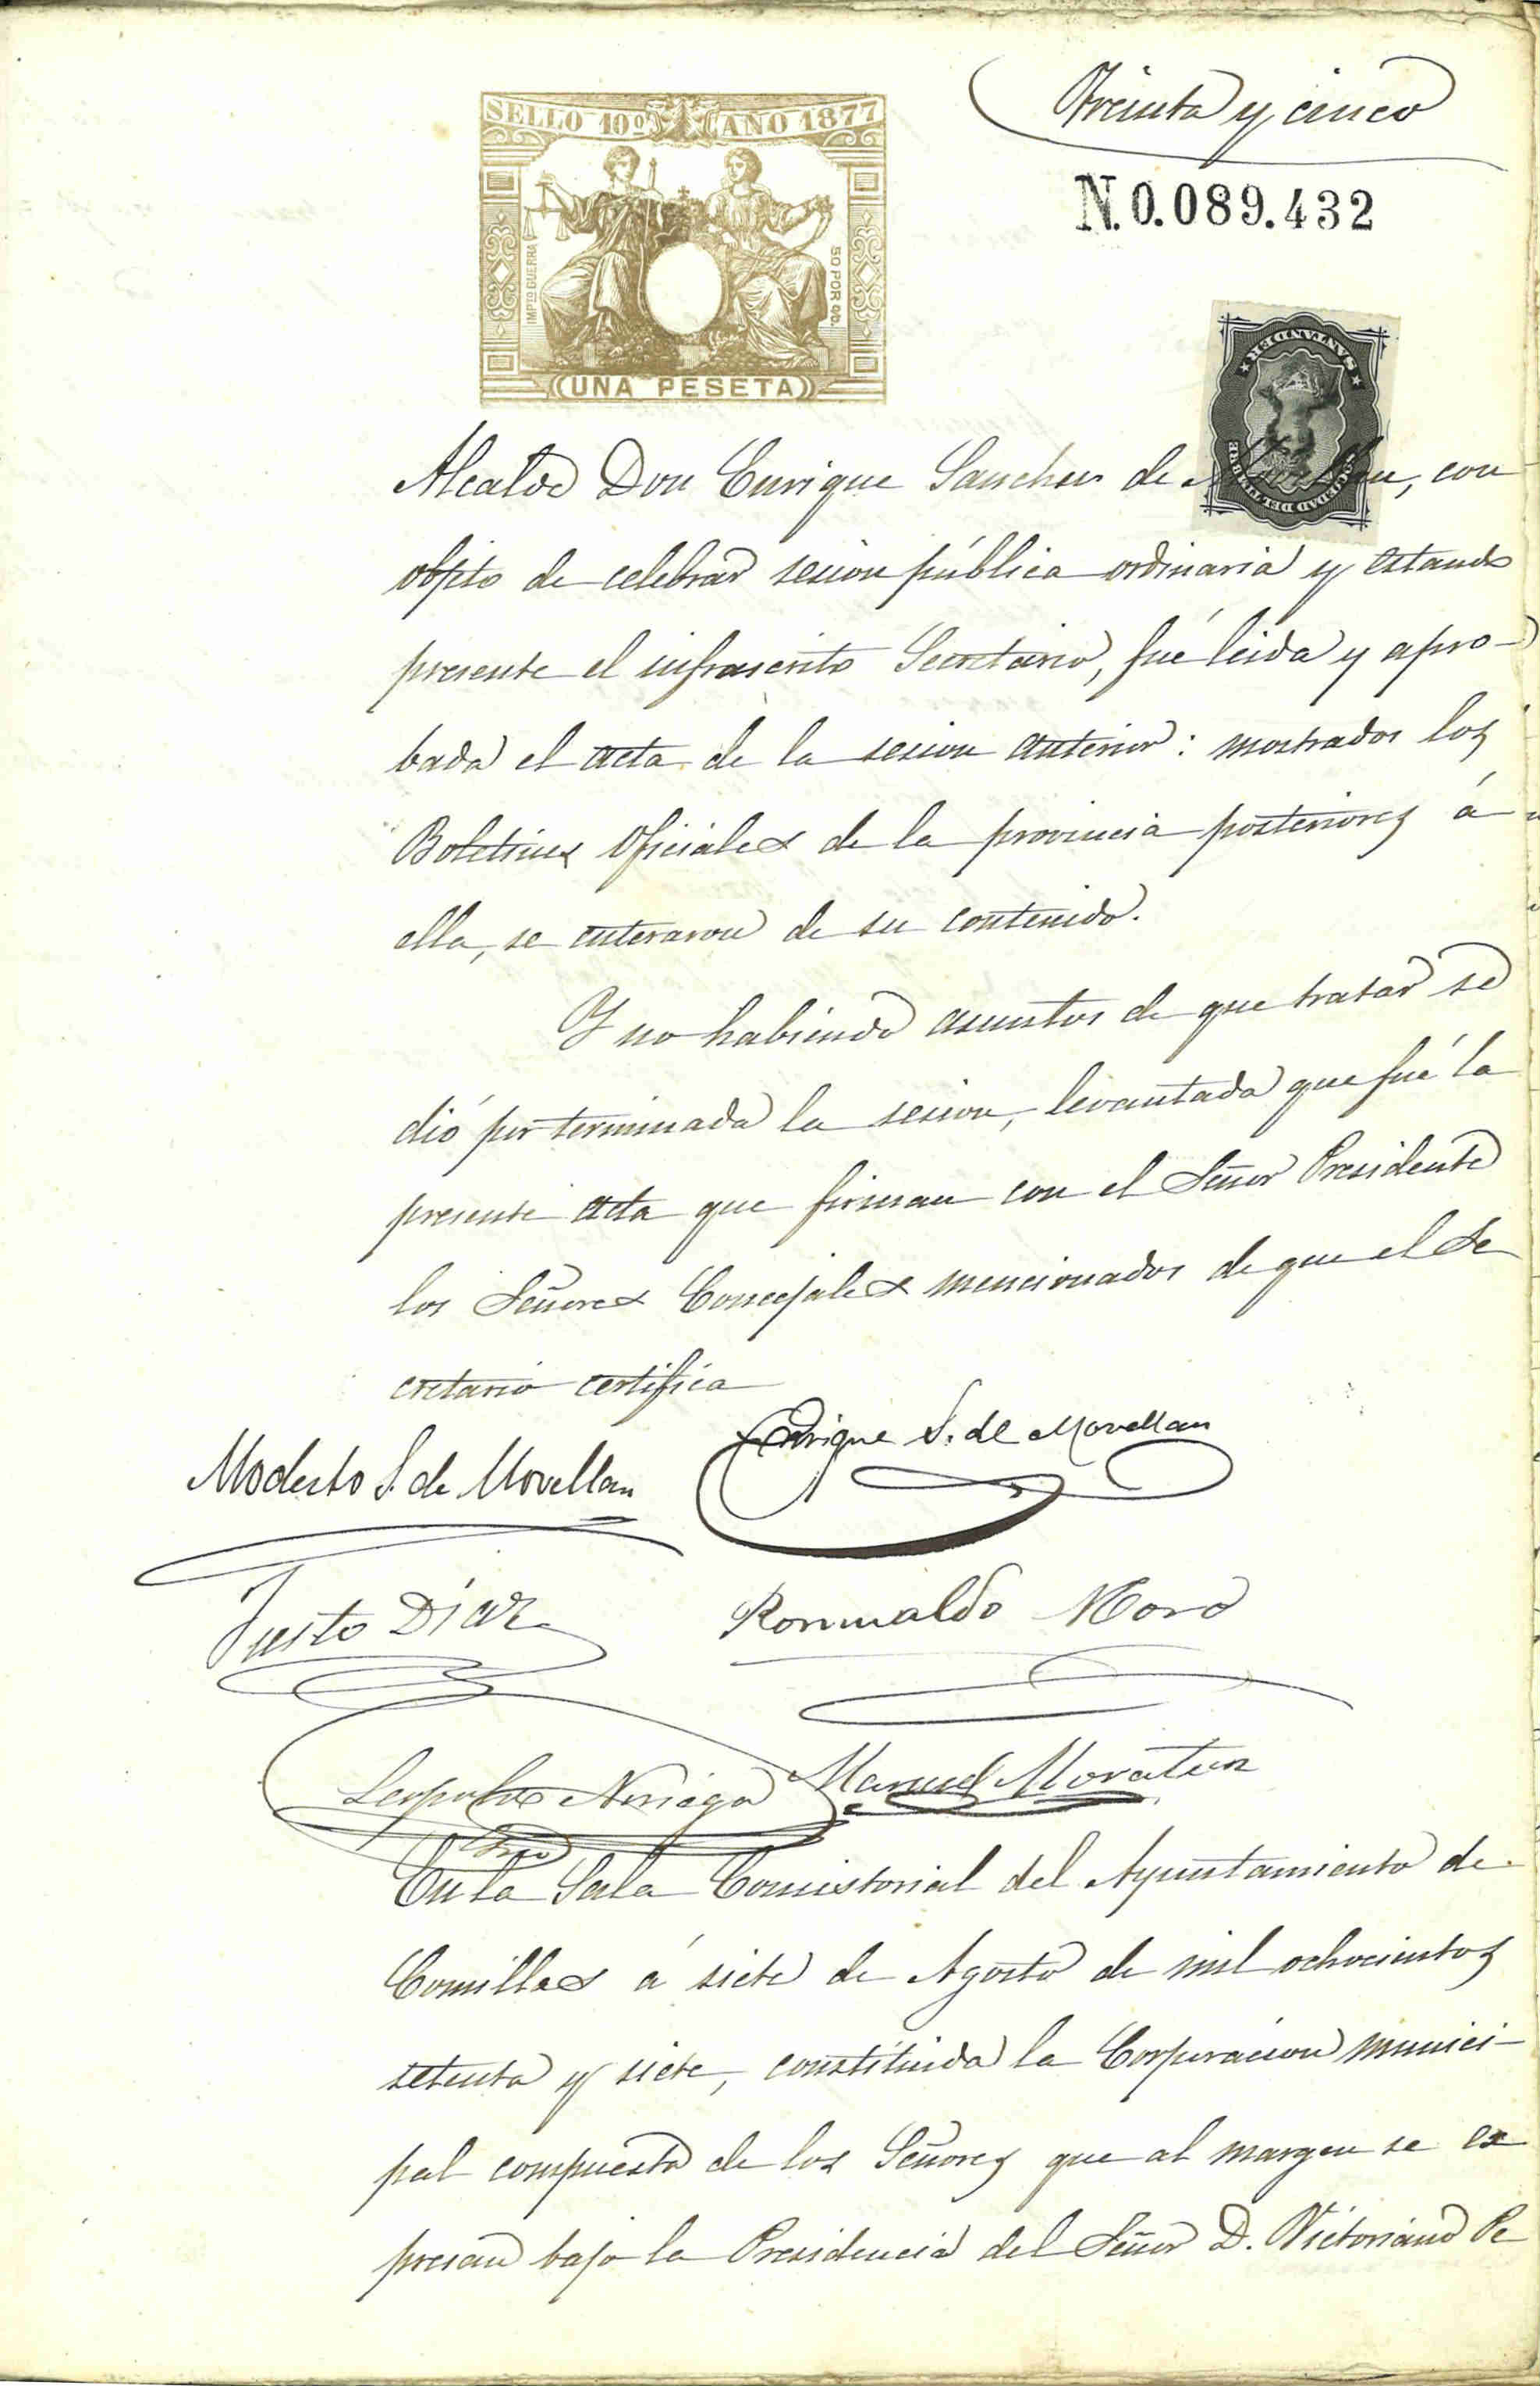 Treinta y cinco
SELLO 10º AÑO 1877
N.0.089.432
IMPTO GUERRA
50 POR 00.
UNA PESETA
SANTANDER
SOCIEDAD DEL TIMBRE
Alcalde Don Enrique Sanchez de Movellan, con
objeto de celebrar sesion pública ordinaria y estando
presente el infrascrito Secretario, fué leida y apro-
bada el acta de la sesion anterior: mostrados los
Boletines Oficiales de la provincia posteriores á
ella, se enteraron de su contenido.
Y no habiendo asuntos de que tratar se
dió por terminada la sesion, levantada que fué la
presente acta que firman con el Señor Presidente
los Señores Concejales mencionados de que el Se
cretario certifica
Enrique S. de Movellan
Modesto S. de Movellan
Justo Diaz
Romualdo Moro
Leopoldo Noriega
Manuel Moratun
Srio
En la Sala Consistorial del Ayuntamiento de
Comillas á siete de Agosto de mil ochocientos
setenta y siete, constituida la Corporacion munici-
pal compuesta de los Señores que al margen se ex
presan bajo la Presidencia del Señor D. Victoriano Pe